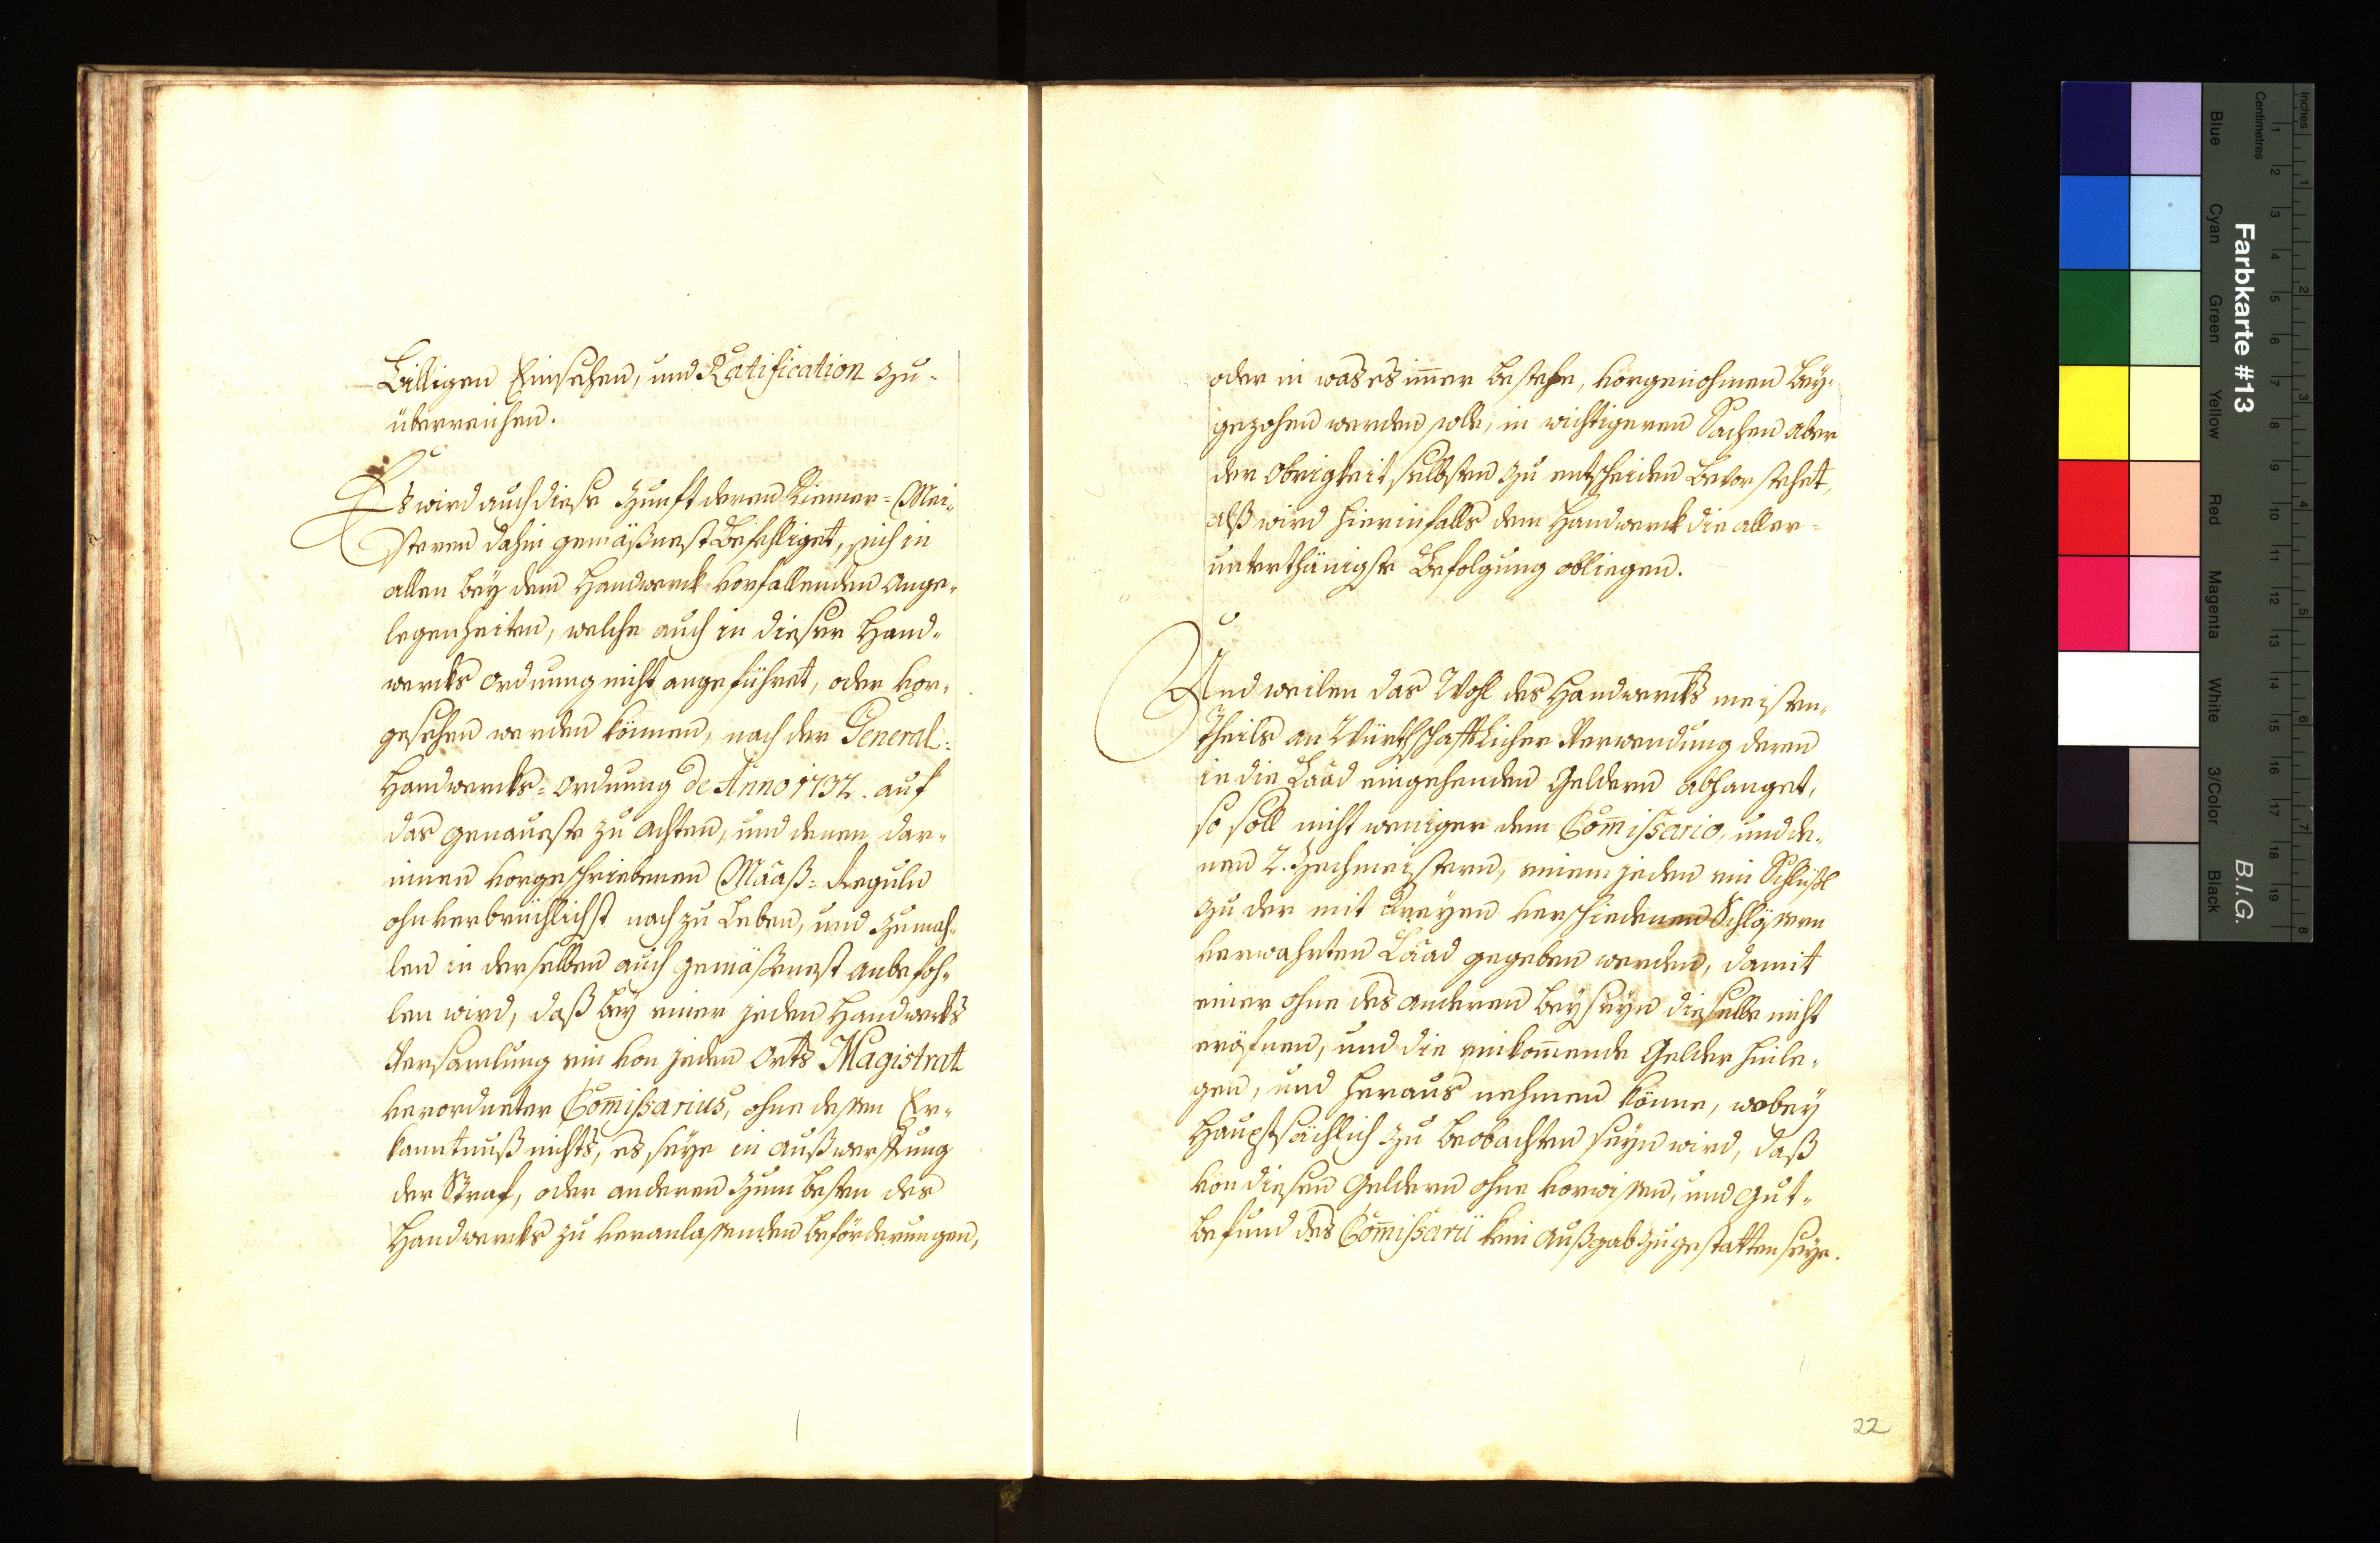 Billigen Einsehen, und Ratification zu-
überreichen.
Es wird auch diese Zunft deren Riemer-Mei-
steren dahin gemäßnest Befehliget, sich in
allen bey dem Handwerck vorfallenden ange-
legenheiten, welche auch in dieser Hand-
wercks ordnung nicht angeführet, oder vor-
gesehen werden können, nach der General-
Handwercks-ordnung de Anno 1732. auf
das genaueste zu achten, und denen dar-
innen vorgeschriebenen Maaß-Reguln
ohnverbrüchlichst nach zu Leben, und zumah-
len in derselben auch gemäßnest anbefoh-
len wird, daß bey einer jeden Handwercks
Versamlung ein von jeden Orts Magistrat
verordneter Com̄issarius, ohne dessen Er-
kanntnuß nichts, es seye in außwerffung
der Straf, oder anderen zum Besten des
Handwercks zu veranlassenden beförderungen,
oder in was es im̄er bestehe, vorgenohmen bey-
gezohen werden solle, in wichtigeren Sachen aber
der Obrigkeit selbsten zu entscheiden bevor stehet,
alß wird hierinfalls dem Handwerck die aller-
unterthänigste Befolgung obliegen.
Und weilen das Wohl des Handwercks meisten-
theils an Würthschafftlicher Verwendung deren
in die Laad eingehenden Geldern abhanget,
so soll nicht weniger dem Com̄issario, und de-
nen 2. Zechmeistern, einem jeden ein Schlüßl
zu der mit dreyen verschiedenen Schlössern
verwahrten Laad gegeben werden, damit
einer ohne des anderen Beyseyn dieselbe nicht
eröfnen, und die einkom̄ende Gelder hinle-
gen, und heraus nehmen könne, wobey
Hauptsächlich zu beobachten seyn wird, daß
von diesen Geldern ohne vorwissen, und Gut-
befund des Com̄issarii kein Außgab zugestatten seye.
22
Inches
Centimetres
Farbkarte #13
B.I.G.
Blue
Cyan
Green
Yellow
Red
Magenta
White
3/Color
Black
1 2 3 4 5 6 7 8 9 10 11 12 13 14 15 16 17 18 19
1 2 3 4 5 6 7 8